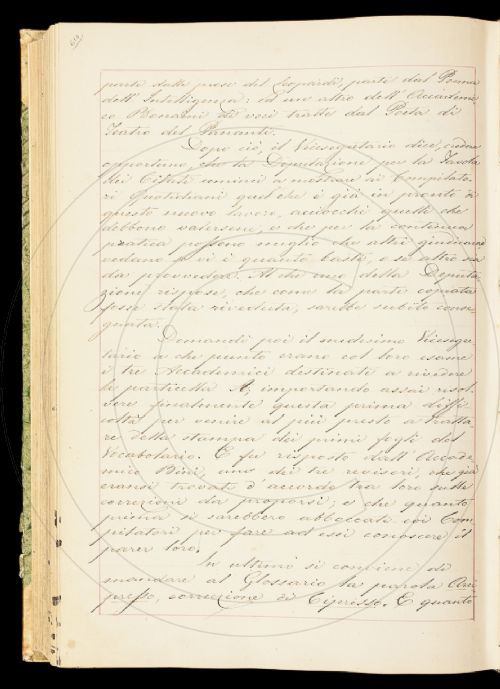 parte dalle prose del Leopardi, parte dal Poema
dell' Intelligenza: ed un altro dell' Accademi
co Bonaini di voci tratte dal Poeta di
Teatro del Pananti.
Dopo ciò, il Vicesegretario dice, credere
opportuno, che la Deputazione per la Tavola
dei Citati cominci a mostrare ai Compilato
ri Quotidiani quel che è già in pronto di
questo nuovo lavoro, acciocchè quelli che
debbono valersene, e che per la continua
pratica possono meglio che altri giudicare
vedano se vi è quanto basti, o se altro sia
da provvedere. Al che uno della Deputa
zione rispose, che come la parte copiata
fosse stata riveduta, sarebbe subito conse
gnata.
Domandò poi il medesimo Vicesegre
tario a che punto erano col loro esame
i tre Accademici destinati a rivedere
la particella A, importando assai risol
vere finalmente questa prima diffi
coltà per venire al più presto a tratta
re della stampa dei primi fogli del
Vocabolario. E fu risposto dall' Accade
mico Bini, uno dei tre revisori, che già
eransi trovati d'accordo tra loro sulle
correzioni da proporsi; e che quanto
prima si sarebbero abboccati coi Com
pilatori per fare ad essi conoscere il
parer loro.
In ultimo si conviene di
mandare al Glossario la parola Arci
presso, correzione di Cipresso. E quanto